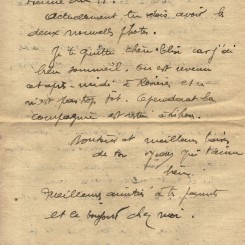 Actuellement tu dois avoir les
deux nouvelles photos.
Je te quitte chère car j'ai
bien sommeil. on est revenu
cet après-midi à Rosières et ce
n'est pas trop tôt. Cependant la
compagnie est restée
Bonsoir et meilleurs baisers
de ton qui t'aime
meilleures amitiés à tes parents
et le bonjour chez moi.